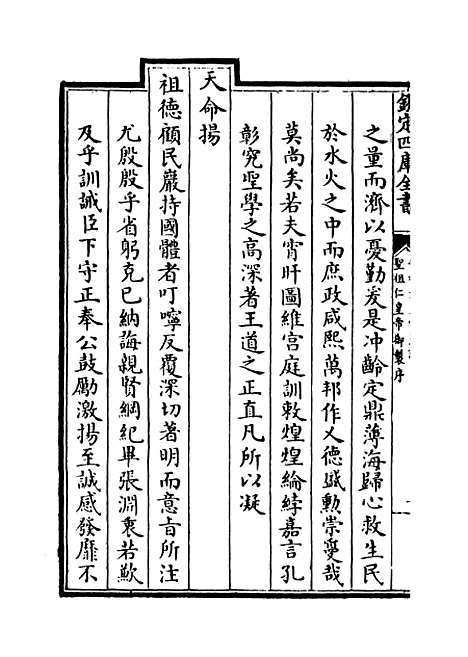 欽定四庫全書
聖祖仁皇帝御製序
之量而濟以憂勤爰是冲齡定鼎薄海歸心救生民
於水火之中而庶政咸熙萬邦作乂德盛勲崇戞哉
莫尚矣若夫宵旰圖維宫庭訓敕煌煌綸綍嘉言孔
彰究聖學之高深著王道之正直凡所以凝
天命揚
祖德顧民巖持國體者叮嚀反覆深切著明而意㫖所注
尤殷殷乎省躬克己納誨親賢綱紀畢張淵衷若歉
及乎訓誡臣下守正奉公鼓勵激揚至誠感發靡不